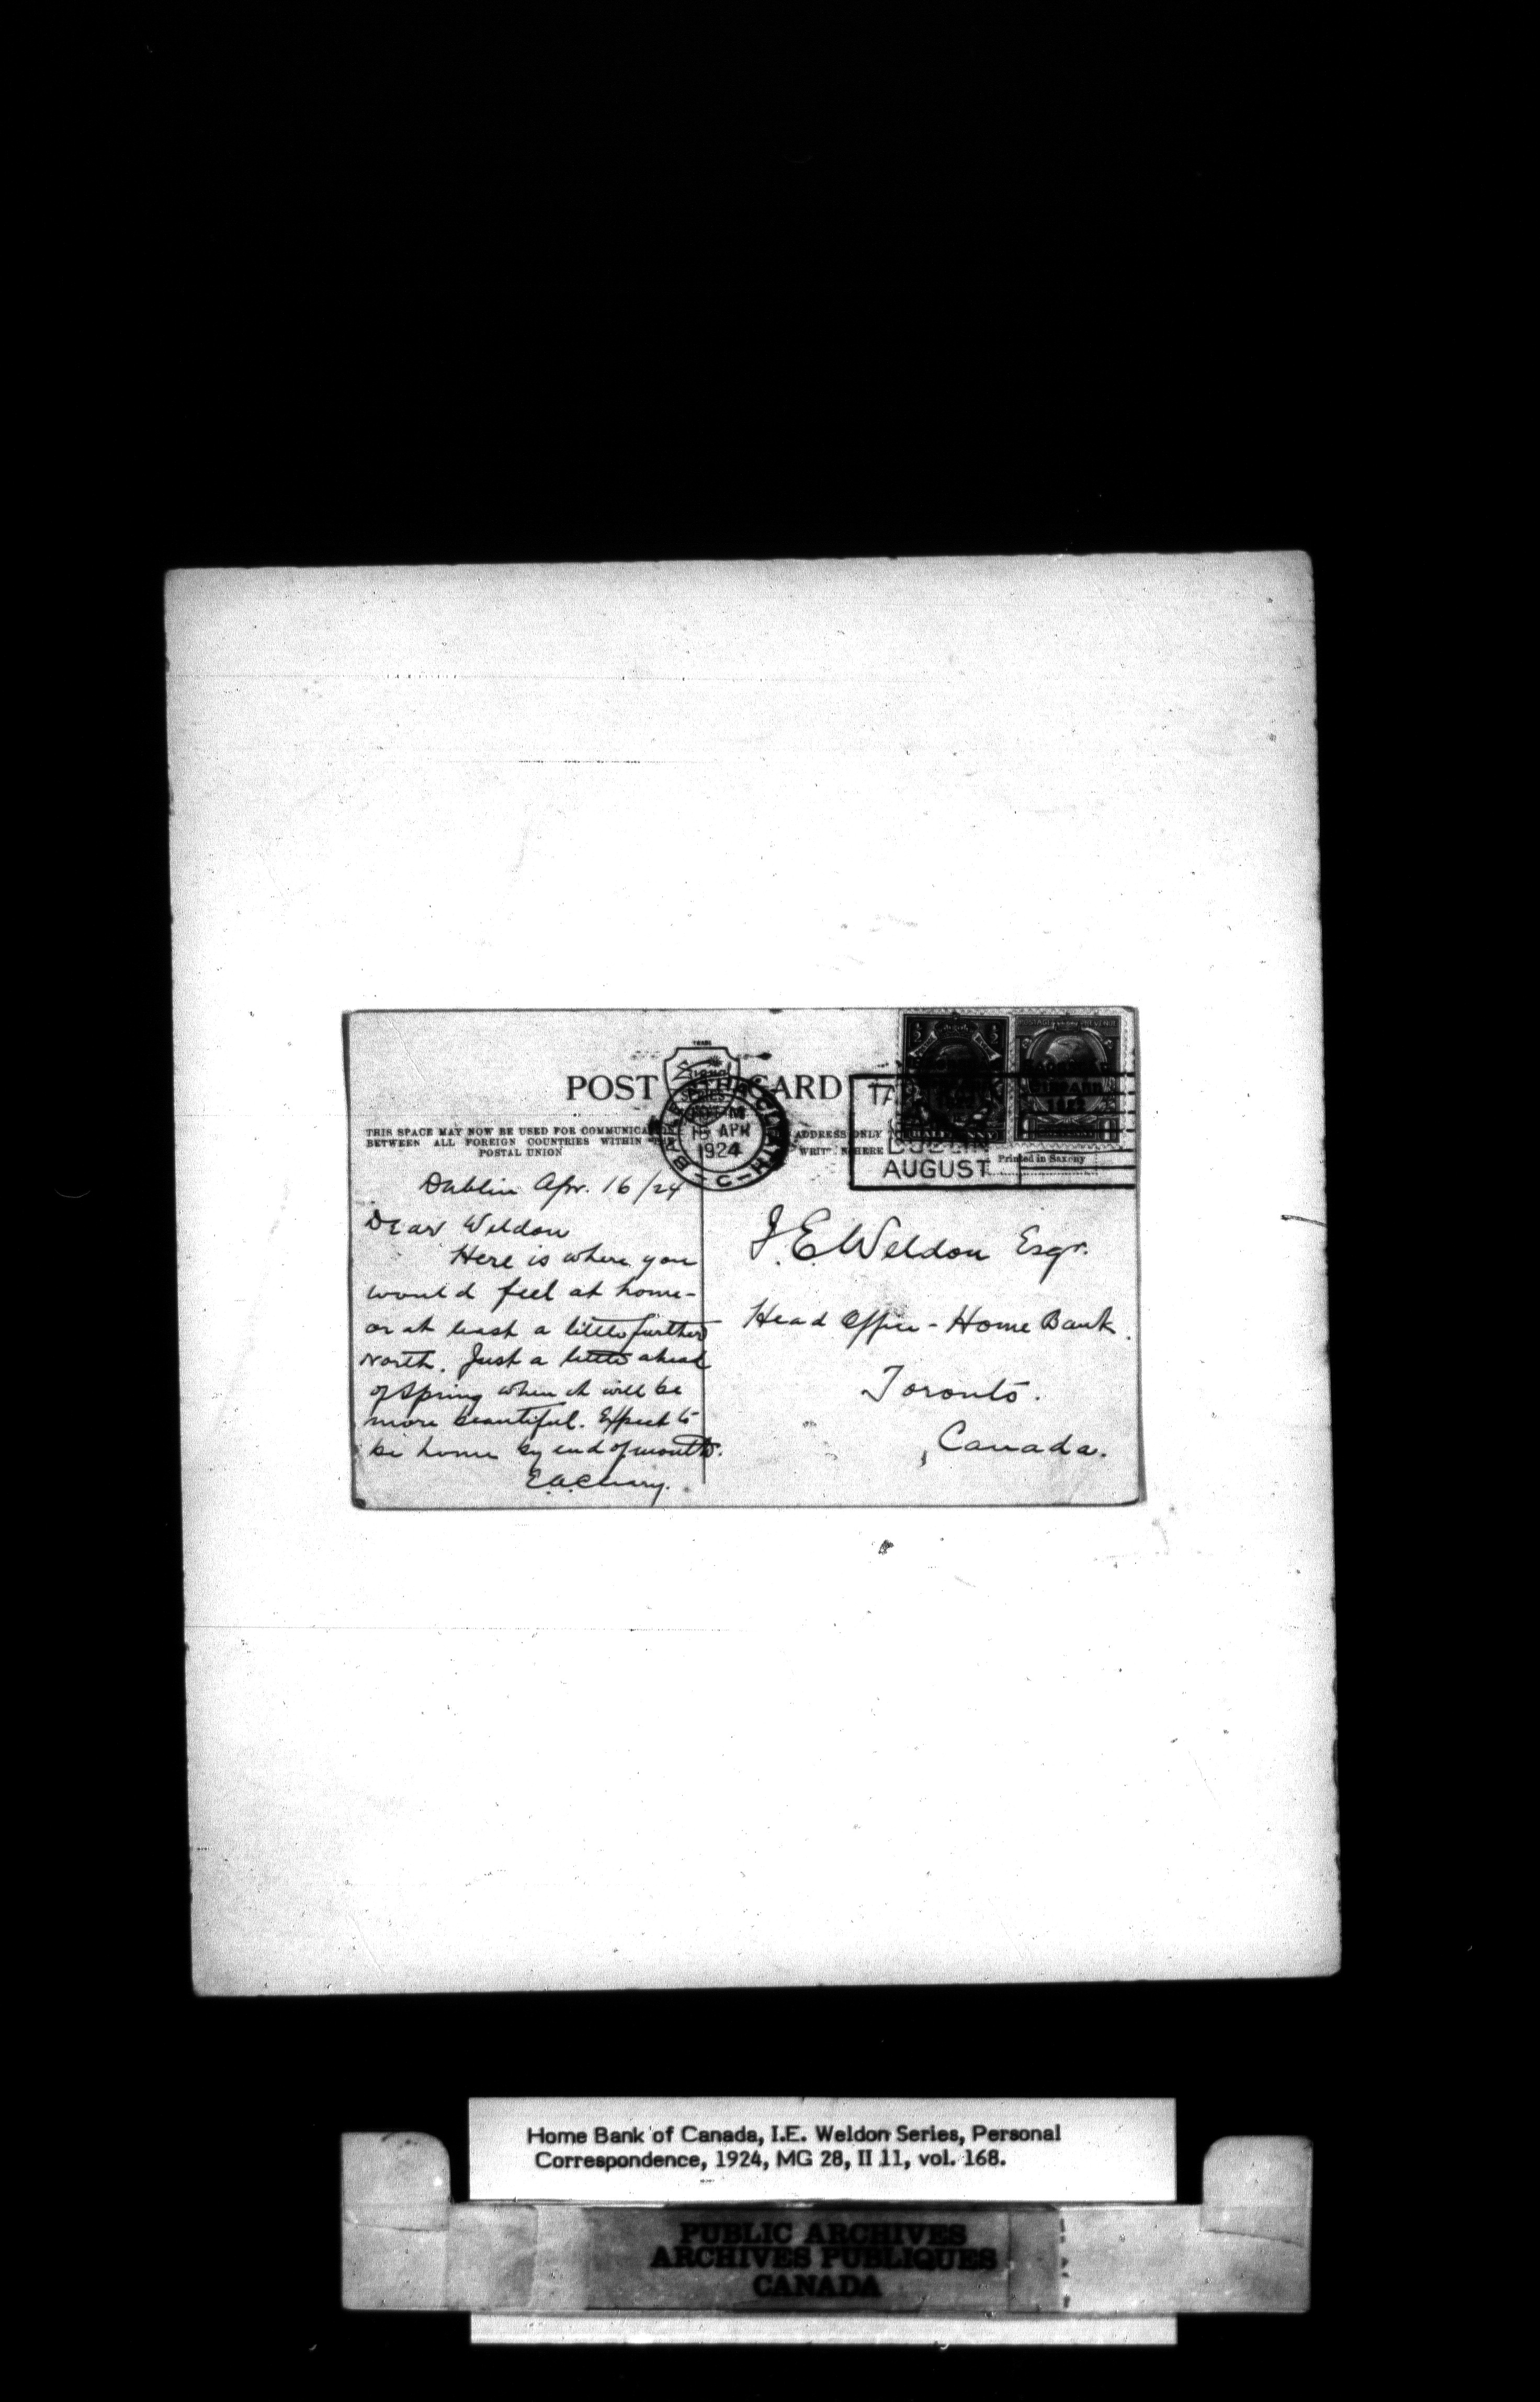 POST CARD
THIS SPACE MAY NOW BE USED FOR COMMUNICATION
BETWEEN ALL FOREIGN COUNTRIES WITHIN THE
POSTAL UNION
ADDRESS ONLY
HERE
BAILE ÁTHA CLIATH
C
APR
1924
DUBLIN
AUGUST
Printed in Saxony
Dublin Apr. 16/24
Dear Weldon
Here is where you
would feel at home -
or at least a little further
North. Just a little ahead
of Spring when it will be
more beautiful. Expect to
be home by end of month.
I.E. Weldon Esqr.
Head Office - Home Bank.
Toronto.
Canada.
Home Bank of Canada, I.E. Weldon Series, Personal
Correspondence, 1924, MG 28, II 11, vol. 168.
PUBLIC ARCHIVES
ARCHIVES PUBLIQUES
CANADA